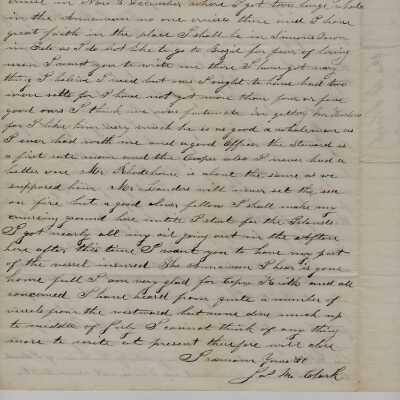 cruise in Nov & December where I got two large whale
in the Annawan no one cruises there and I have
great faith in the place I shall be in Simons Town
in Feb as I do not like to go to for fear of losing
men I want you to write me there I have got every
thing I believe I need but one I ought to have had two
more setts for I have not got more than four or five
good ones I think we was fortunate in getting Mr
for I like him very much he is as good a whaleman as
I ever had with me and a good officer the Steward is
a first rate man and the Cooper also I never had a
better one Mr is about the same as we
supposed him Mr will never set the sea
on fire but a good clever fellow I shall make my
cruising ground here until I start for the Islands
I got nearly all my oil going out in the
here after this time I want you to have my part
of the vessel insured The Annawan I hear is gone
home full I am very glad for Capt Keith and all
concerned I have heard from quite a number of
vessels from the westward but none done much up
to middle of July I cannot think of any thing
more to write at present therefore will close
I remain Yours &c
Clark